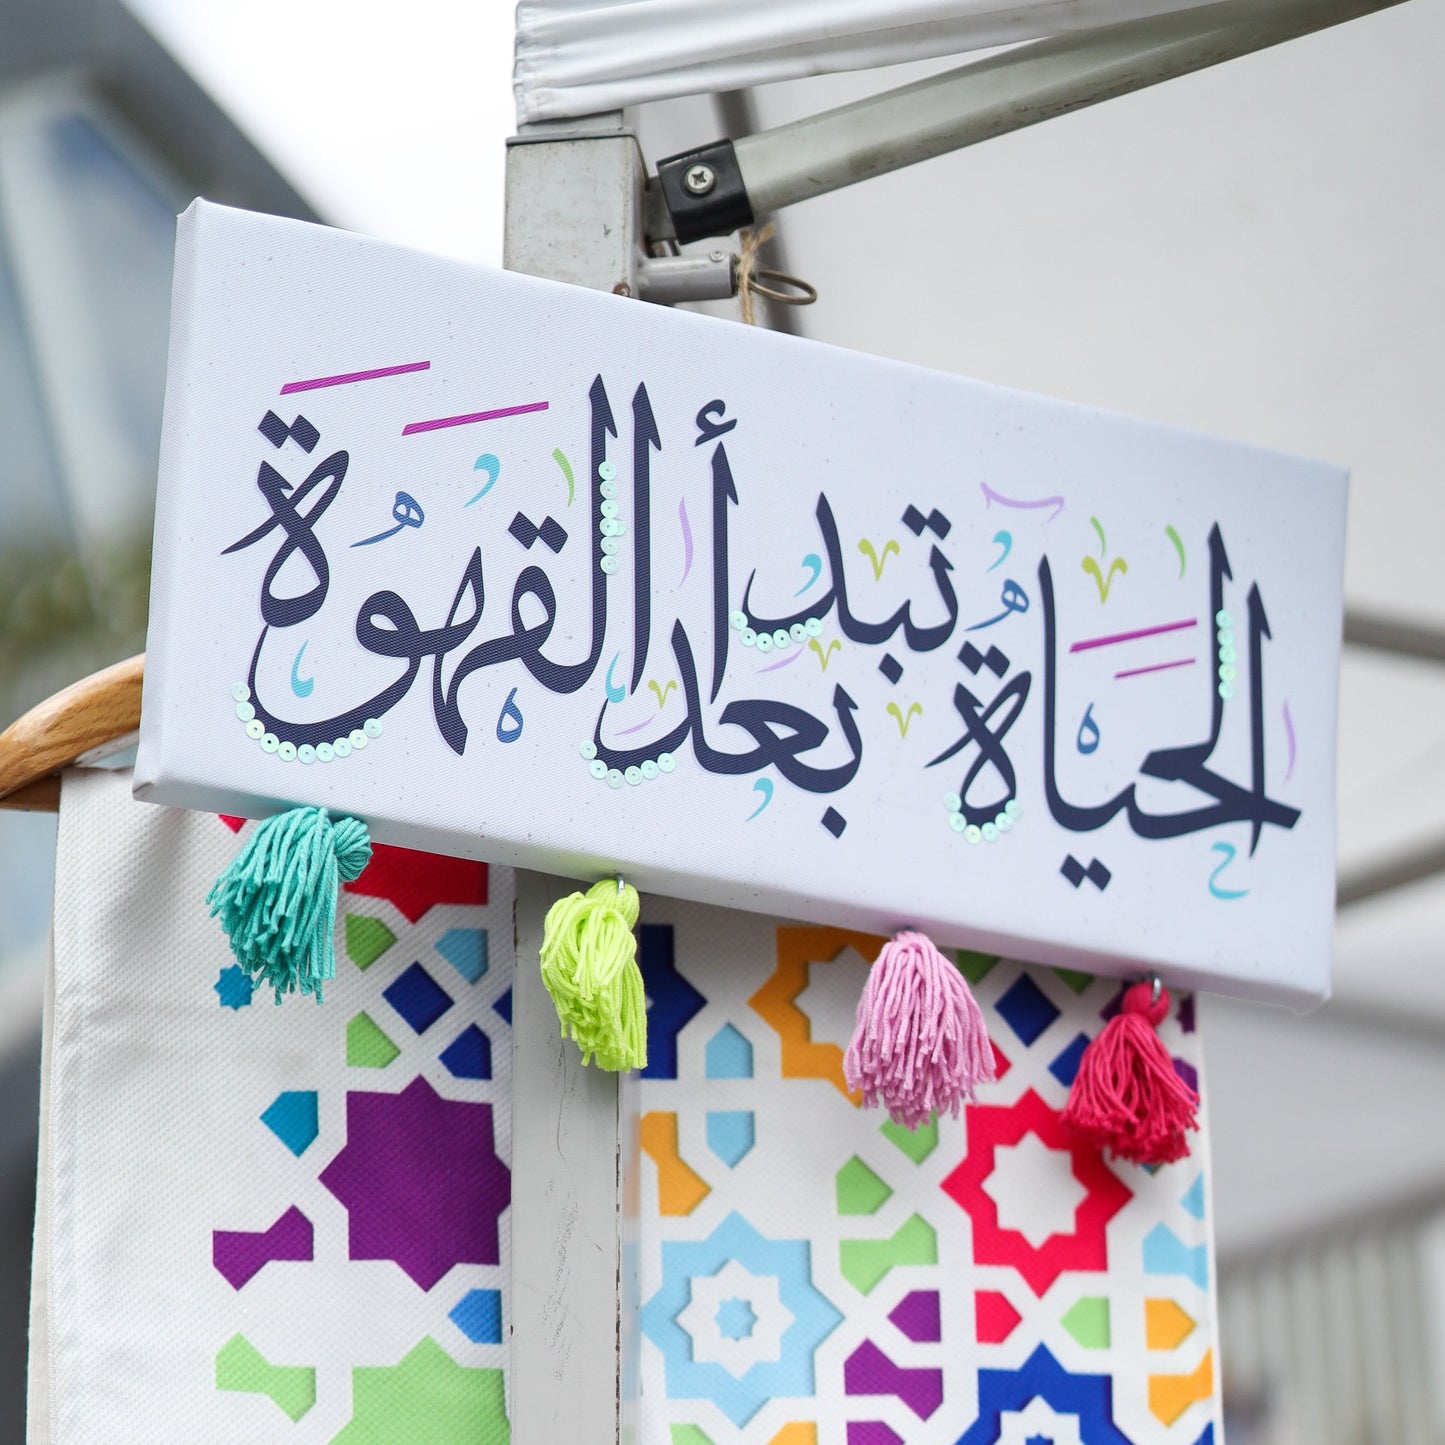 الحياة تبدأ بعد القهوة